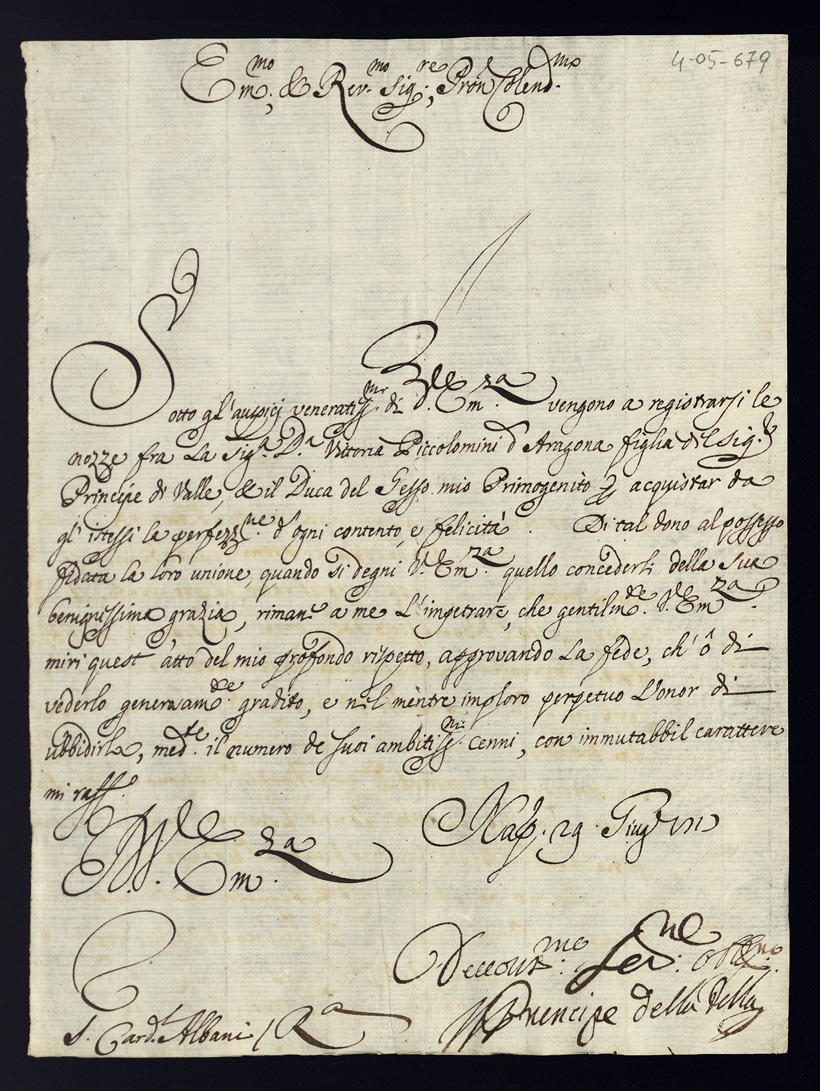 4-05-679
Em.mo & Rev.mo Sig.re, Pron Colend.mo
Sotto gl'auspicj veneratiss.mi di V. Em.za vengono a registrarsi le
nozze fra La Sig.a D.a Vittoria Piccolomini d'Aragona figlia del Sig.r
Principe di Valle, & il Duca del Gesso mio Primogenito p acquistar da
gl'istessi la perfezz.ne d'ogni contento, e felicità. Di tal dono al possesso
fidata la loro unione, quando si degni V. Em.za quello concederli della sua
benignissima grazia, riman.e a me L'impetrare, che gentilm.te V. Em.za
miri quest'atto del mio profondo rispetto, approvando La fede, ch'ò di
vederlo generosam.te gradito, e nel mentre imploro perpetuo L'onor di
ubbidirla, med.te il numero de suoi ambitiss.mi cenni, con immutabbil carattere
mi raff.o
Di V. Em.za
Nap. 29 Giug.o
Devotiss.mo Ser.re obblig.mo
S. Card.l Albani / Ra
Il Principe della Villa